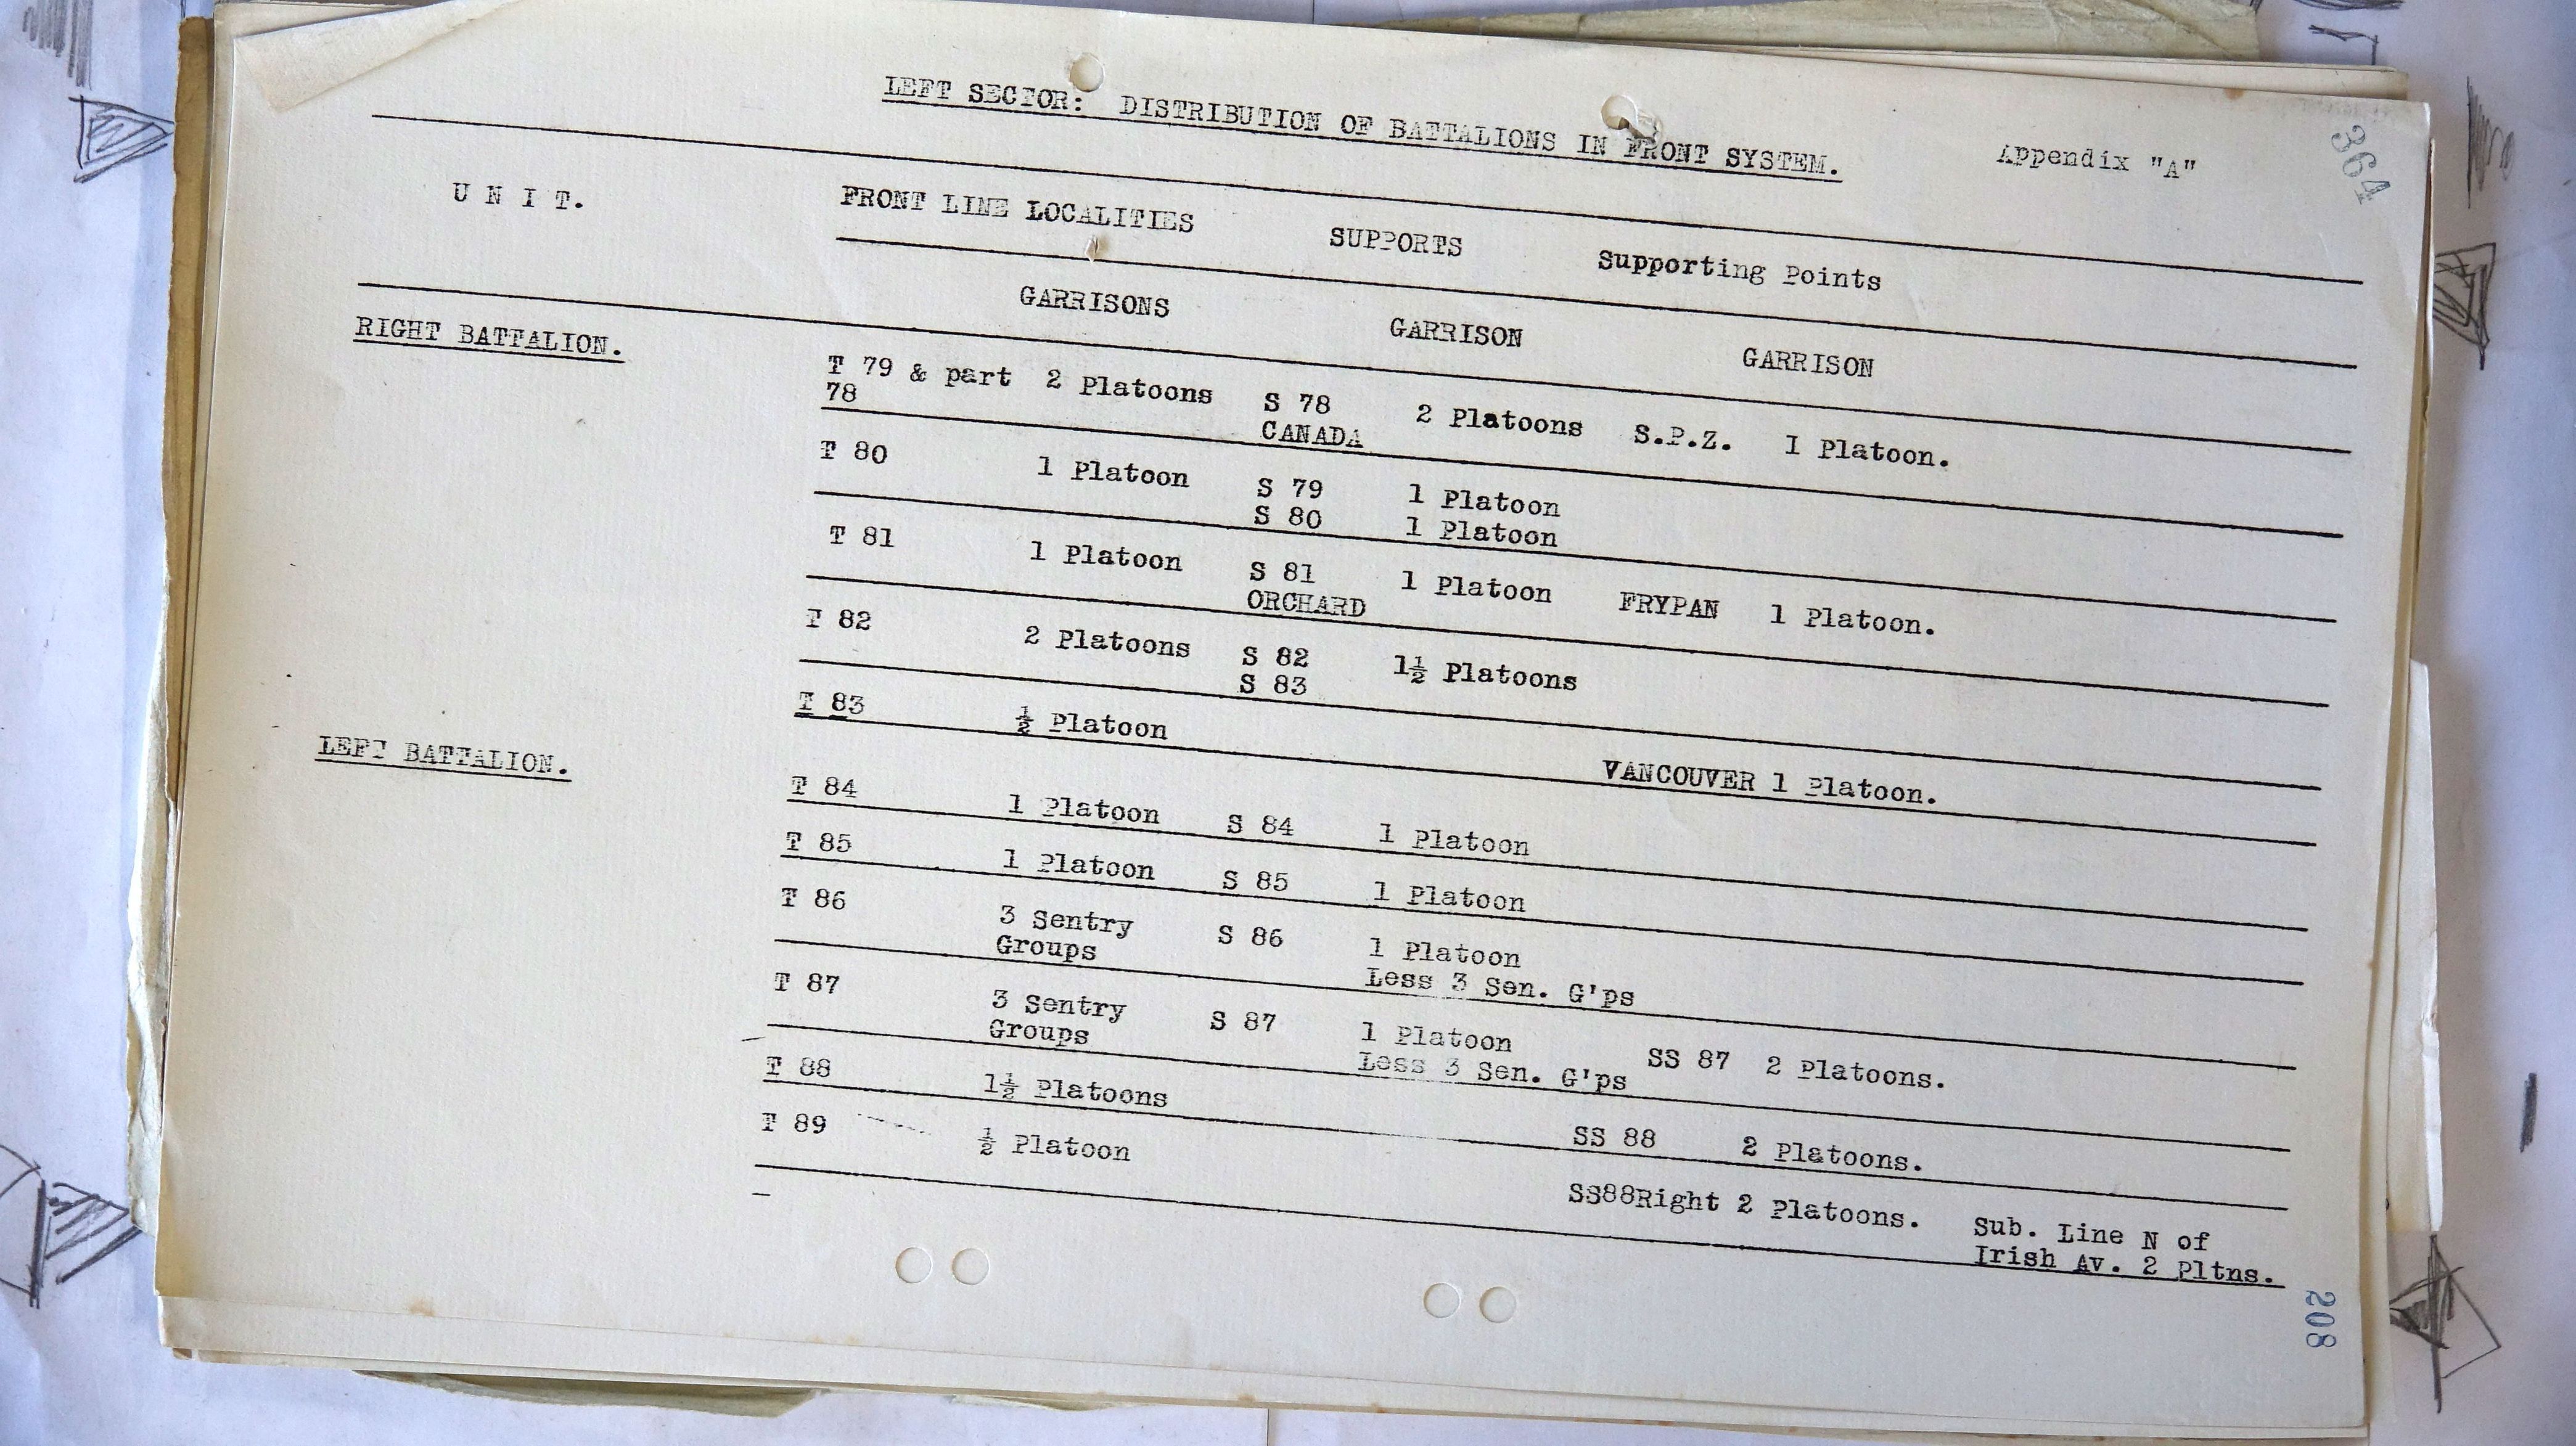 LEFT SECTOR: DISTRIBUTION OF BATTALIONS IN FRONT SYSTEM. Appendix "A"
364
U N I T. FRONT LINE LOCALITIES SUPPORTS Supporting Points
GARRISONS GARRISON GARRISON
RIGHT BATTALION.
T 79 & part 2 Platoons S 78 2 Platoons S.P.Z. I Platoon.
78 CANADA
T 80 1 Platoon S 79 1 Platoon
S 80 1 Platoon
T 81 1 Platoon S 81 1 Platoon FRYPAN 1 Platoon.
ORCHARD
T 82 2 Platoons S 82 1½ Platoons
S 83
T 83 ½ Platoon
VANCOUVER 1 Platoon.
LEFT BATTALION.
T 84 1 Platoon S 84 1 Platoon
T 85 1 Platoon S 85 1 Platoon
T 86 3 Sentry S 86 1 Platoon
Groups Less 3 Sen. G'ps
T 87 3 Sentry S 87 1 Platoon SS 87 2 Platoons.
Groups Less 3 Sen. G'ps
T 88 1½ Platoons SS 88 2 Platoons.
T 89 ½ Platoon SS88Right 2 Platoons. Sub. Line N of
Irish Av. 2 Pltns.
208